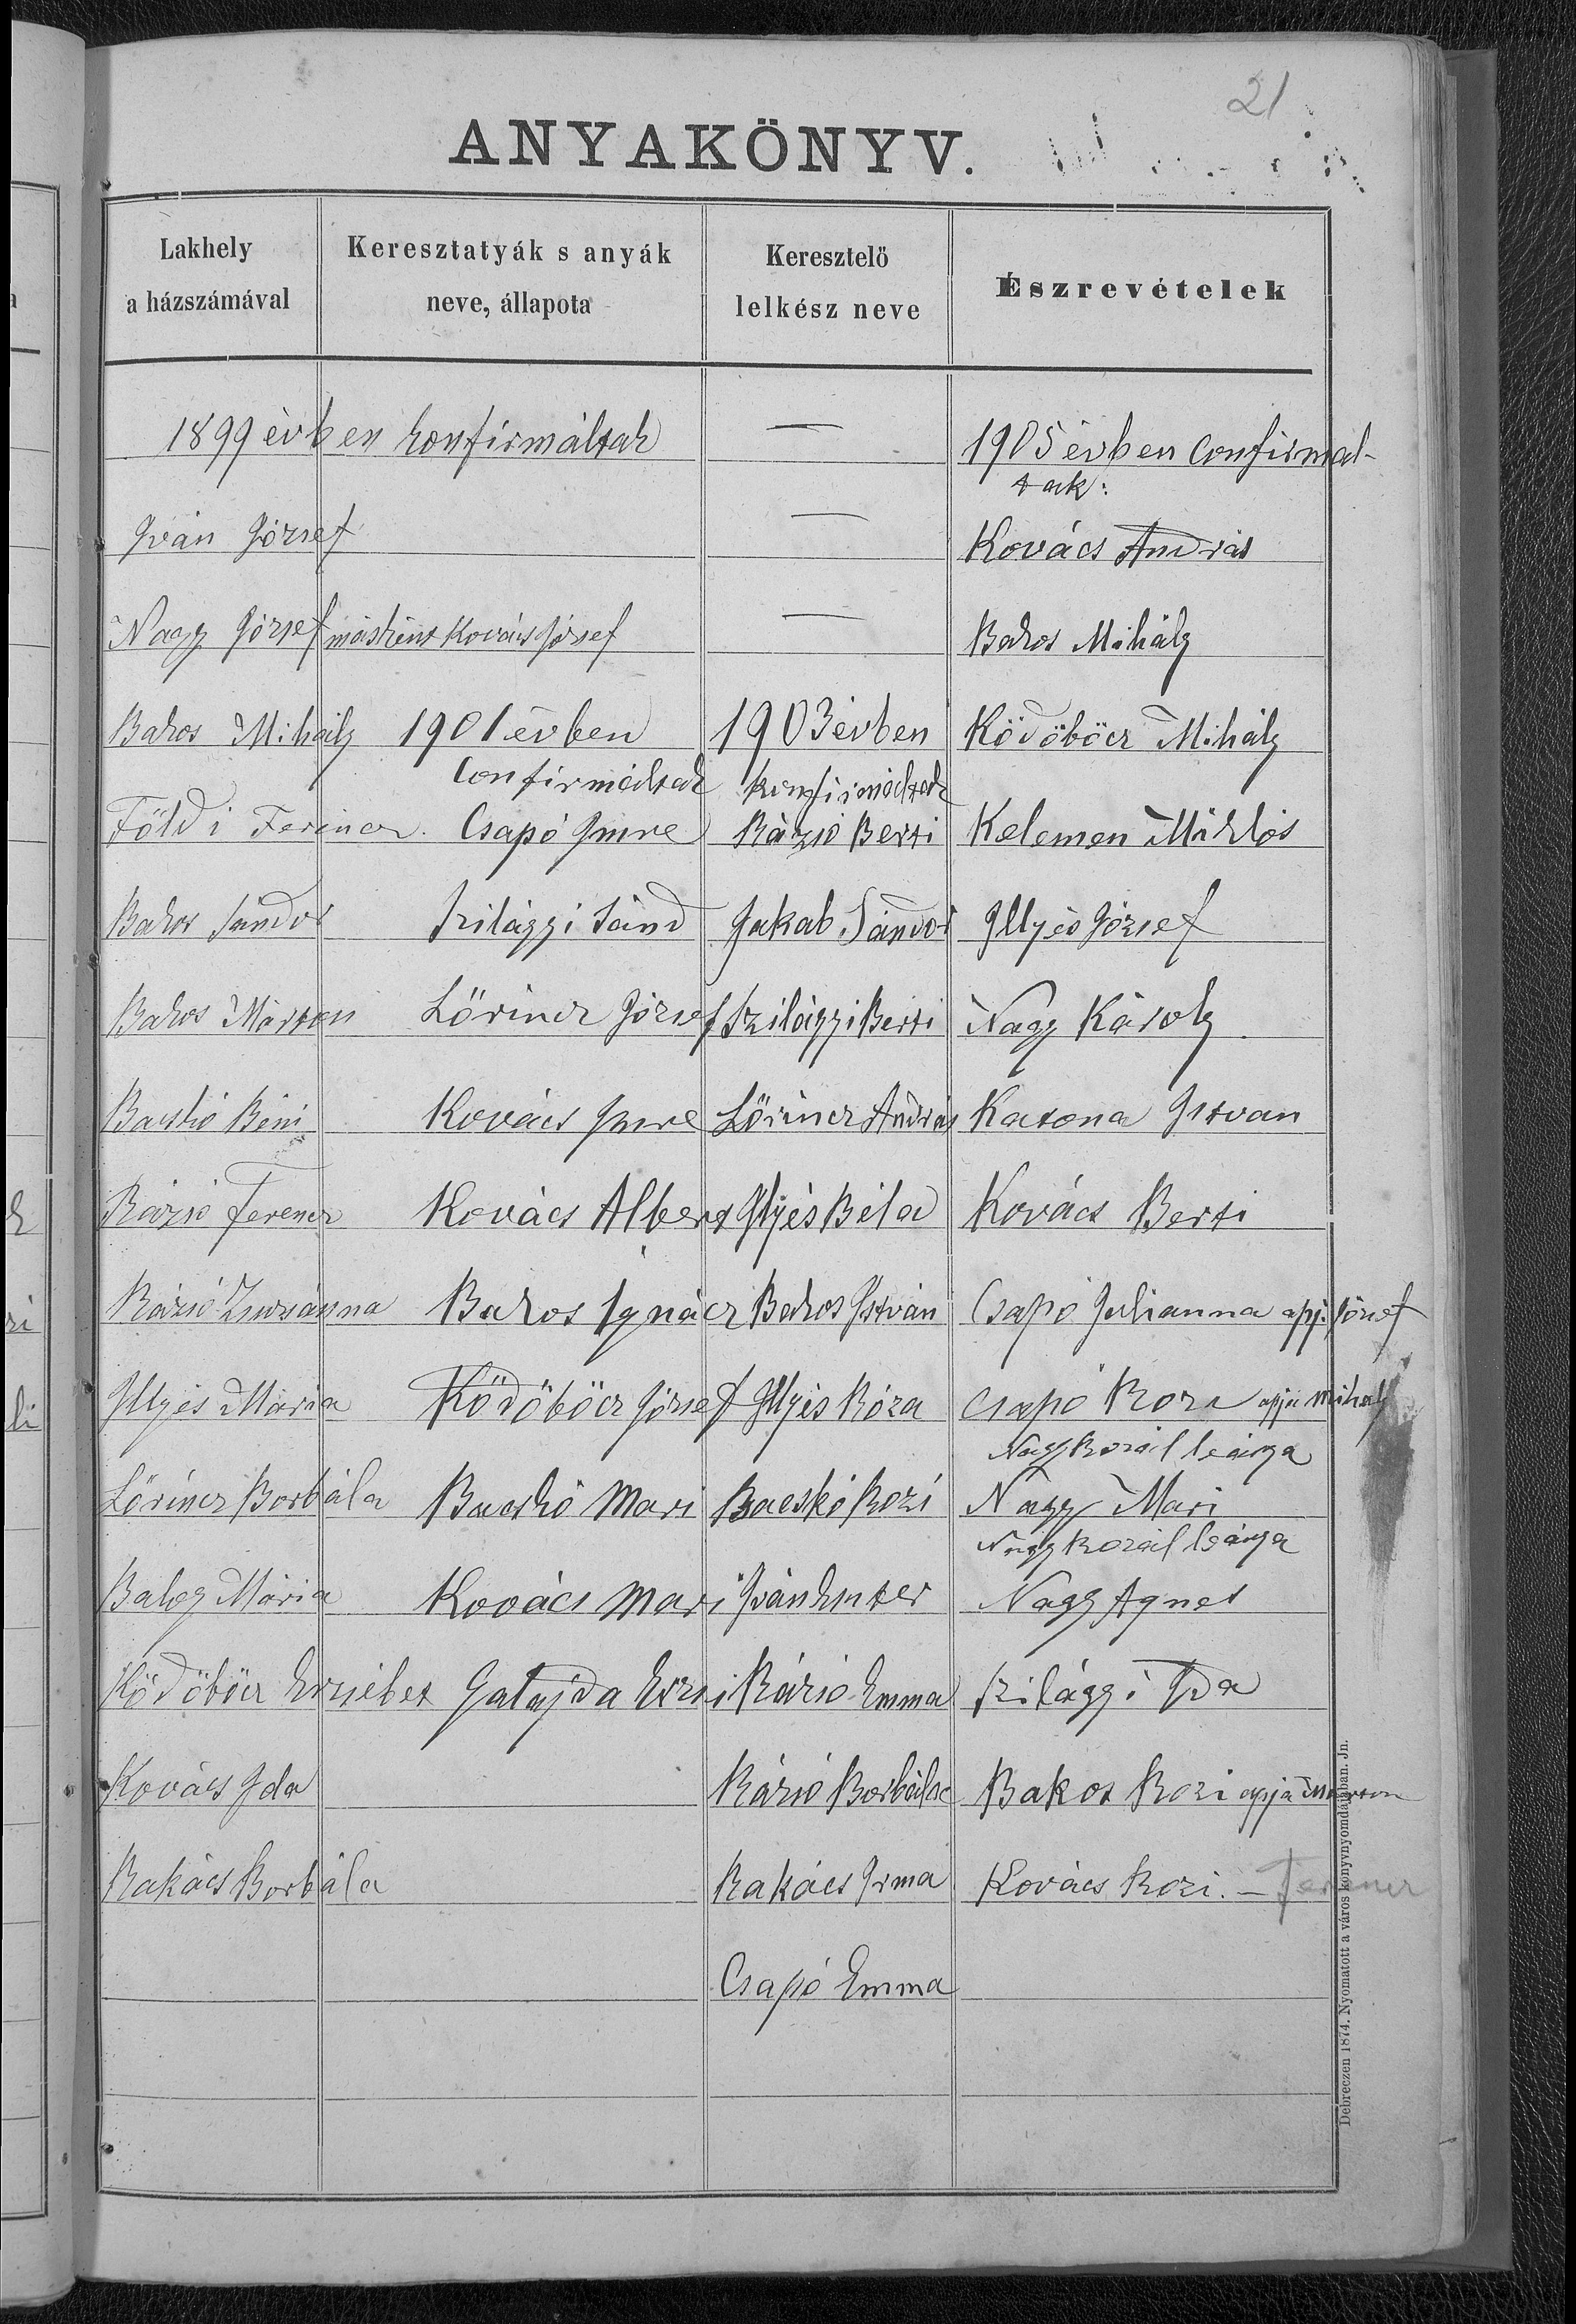 21
ANYAKÖNYV.
Lakhely
a házszámával
Keresztatyák s anyák
neve, állapota
Keresztelő
lelkész neve
Észrevételek
1899 évben konfirmáltak
Iván József
Nagy József máskint Kovács József
Bakos Mihály
Földi Ferencz.
Bakos Sándor
Bakos Márton
Bacskó Béni
Rázsó Ferencz
Rázsó Zsuzsánna
Illyés Mária
Lőrincz Borbála
Balog Mária
Ködöböcz Erzsébet
Kovács Ida
Rakács Borbála
1901 évben
Confirmáltak
Csapó Imre
Szilágyi Sánd
Lőrincz József
Kovács Imre
Kovács Albert
Bakos Ignácz
Ködöböcz József
Bacskó Mari
Kovács Mari
Galajda Erzsi
—
—
—
1903 évben
konfirmáltak
Rázsó Berti
Jakab Sándor
Szilágyi Berti
Lőrincz András
Illyés Béla
Bakos István
Illyés Róza
Bacskó Rozi
Iván Eszter
Rázsó Emma
Rázsó Borbála
Rakács Irma
Csapó Emma
1905 évben Confirmál-
tak:
Kovács András
Bakos Mihály
Ködöböcz Mihály
Kelemen Miklós
Illyés József
Nagy Károly
Katona Istvan
Kovács Berti
Csapó Julianna apj. József
Csapó Roza apja Mihaly
Nagy Rozál leánya
Nagy Mari
Nagy Rozál leánya
Nagy Agnes
Szilágyi Ida
Bakos Rozi apja Márton
Kovács Rozi. – Ferencz
Debreczen 1874. Nyomatott a város könyvnyomdájában. Jn.